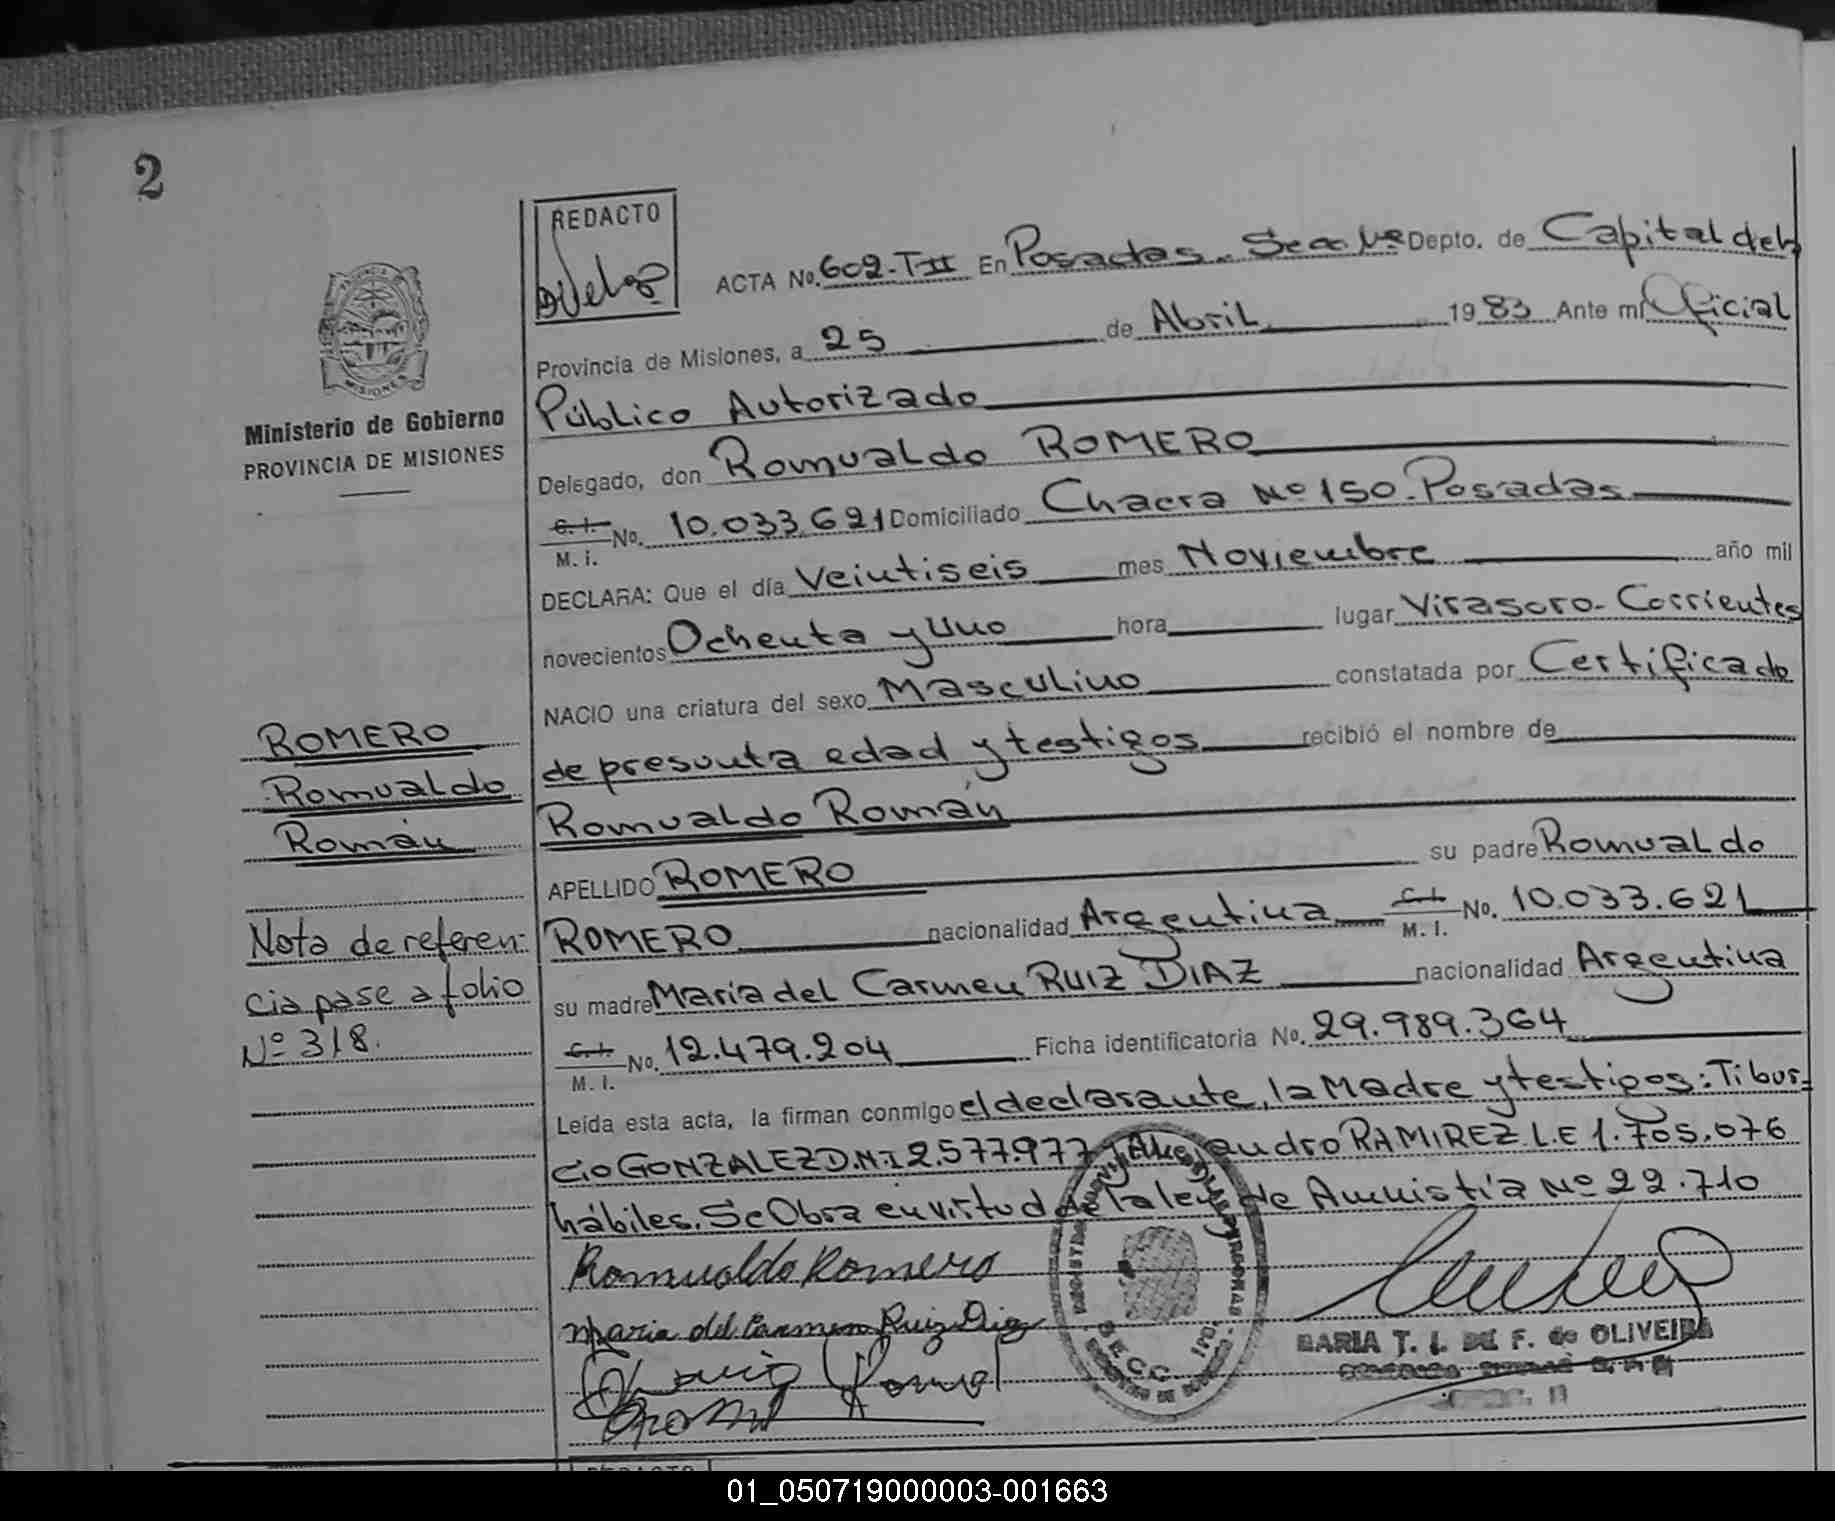 2
REDACTO
ACTA No. 602-T-II En Posadas. Secc 1ra Depto. de Capital del
Provincia de Misiones, a 25 de Abril 1983 Ante mí Oficial
Público Autorizado
Ministerio de Gobierno
PROVINCIA DE MISIONES
MISIONES
Delegado, don Romualdo ROMERO
C. I. No. 10.033.621 Domiciliado Chacra Nº 150. Posadas
M. I.
DECLARA: Que el día Veintiseis mes Noviembre año mil
novecientos Ochenta y Uno hora lugar Virasoro - Corrientes
NACIO una criatura del sexo Masculino constatada por Certificado
de presunta edad y testigos recibió el nombre de
ROMERO
Romualdo
Román
Romualdo Román
APELLIDO ROMERO su padre Romualdo
ROMERO nacionalidad Argentina C. I. No. 10.033.621
M. I.
Nota de referen-
cia pase a folio
Nº 318.
su madre María del Carmen RUIZ DIAZ nacionalidad Argentina
C. I. No. 12.479.204 Ficha identificatoria No. 29.989.364
M. I.
Leída esta acta, la firman conmigo el declarante, la Madre y testigos: Tibur-
cio GONZALEZ D.N.I 2.577.977 y Alejandro RAMIREZ L.E 1.705.076
hábiles. Se Obra en virtud de la ley de Amnistía Nº 22.710
Romualdo Romero
Maria del Carmen Ruiz Diaz
MARIA T. I. DE F. de OLIVEIRA
SECC.
REDACTO
01_050719000003-001663